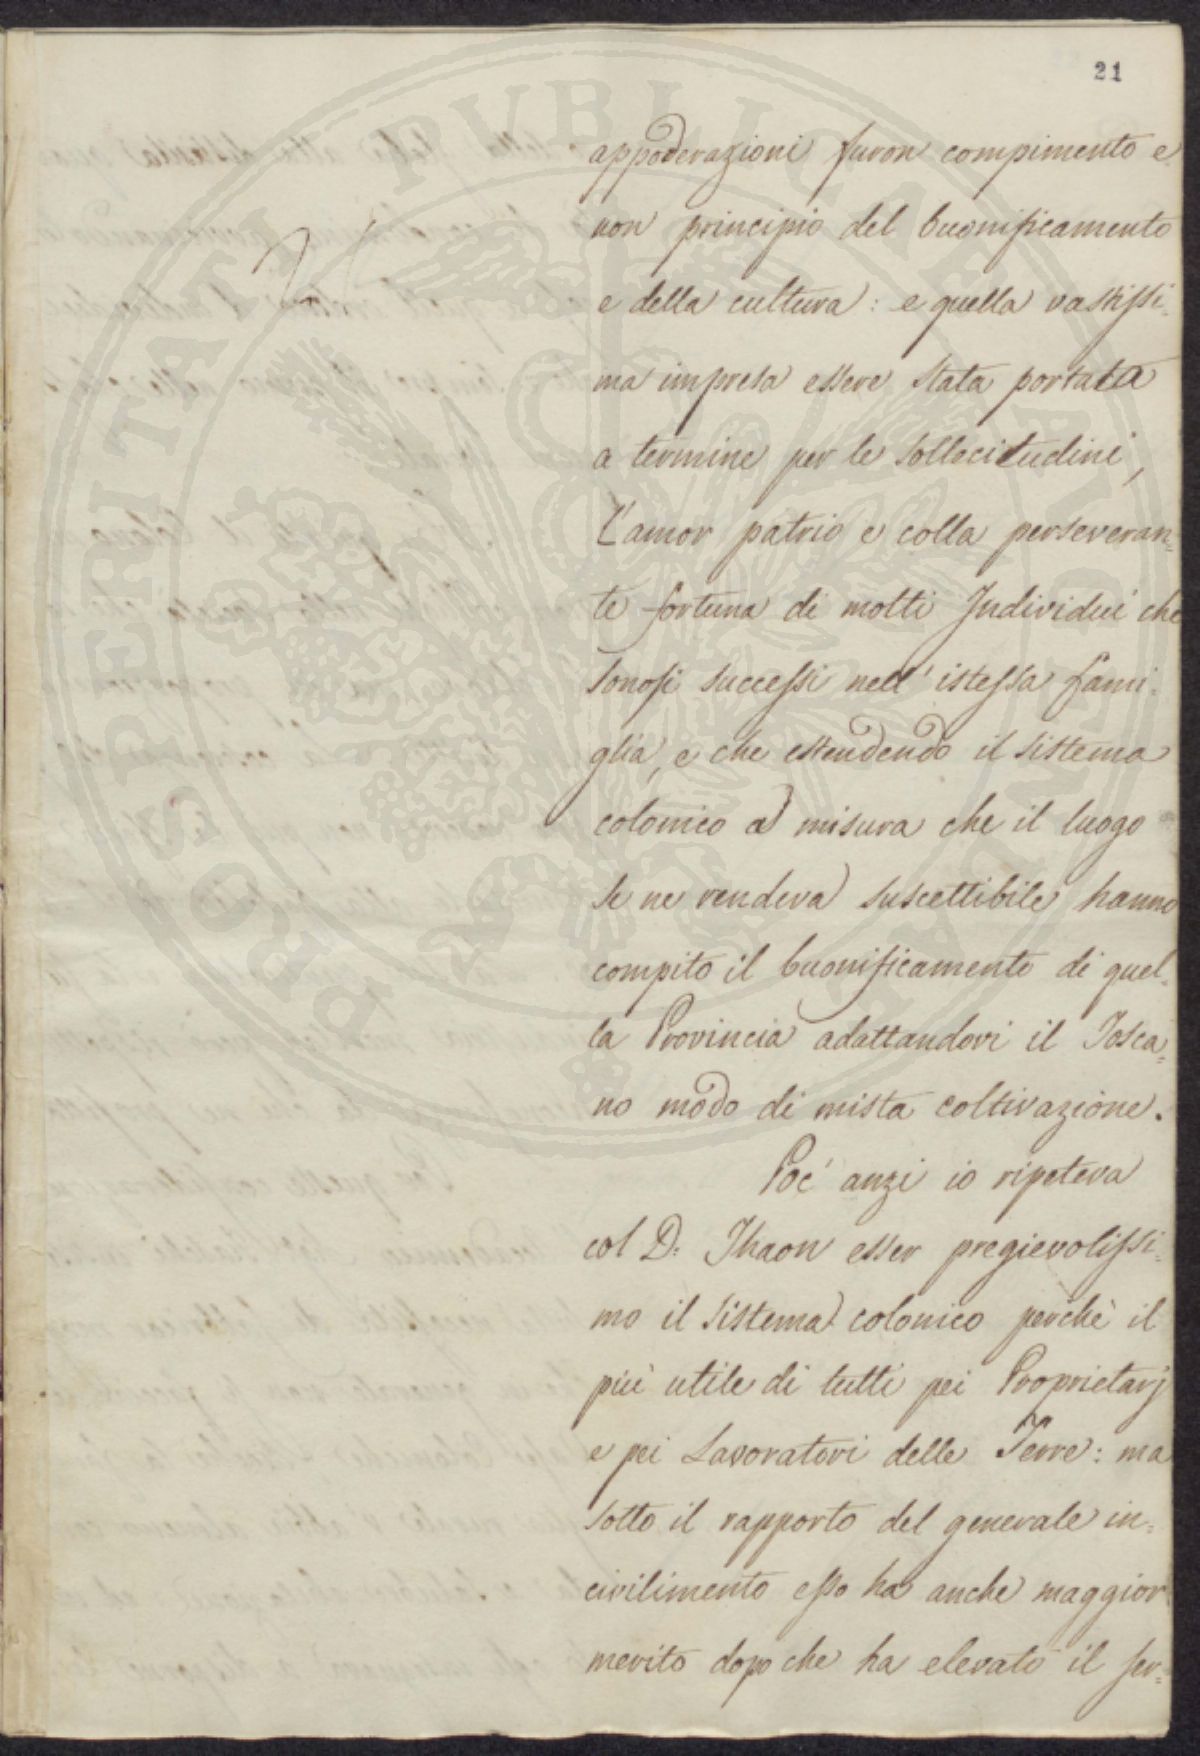 21
appoderazioni furon compimento e
non principio del buonificamento
e della cultura: e quella vastissi=
ma impresa essere stata portata
a termine per le sollecitudini,
l'amor patrio e colla perseveran=
te fortuna di molti Individui che
sonosi successi nell'istessa fami=
glia, e che estendendo il sistema
colonico a misura che il luogo
se ne rendeva suscettibile hanno
compito il buonificamento di quel=
la Provincia adattandovi il Tosca=
no modo di mista coltivazione.
Poc'anzi io ripeteva
col D: Thaon esser pregievolissi=
mo il sistema colonico perchè il
più utile di tutti pei Proprietarj
e pei Lavoratori delle Terre: ma
sotto il rapporto del generale in=
civilimento esso ha anche maggior
merito dopo che ha elevato il ser=
PROSPERITATI PUBLICAE AUGENDAE